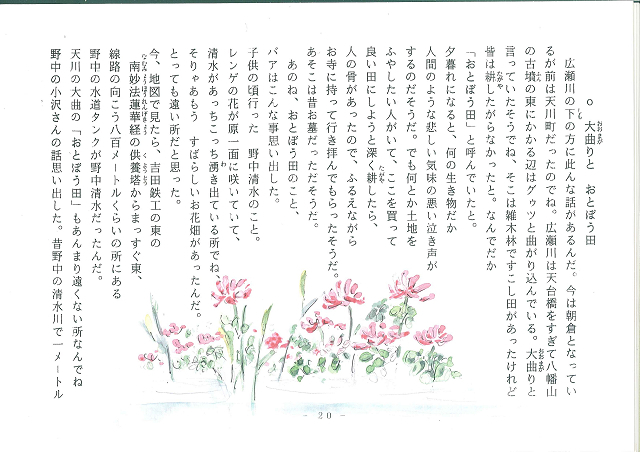 ○ 大曲りと おとぼう田
広瀬川の下の方に此んな話があるんだ。今は朝倉となってい
るが前は天川町だったのでね。広瀬川は天台橋をすぎて八幡山
の古墳の東にかかる辺はグッツと曲がり込んでいる。大曲りと
言っていたそうでね、そこは雑木林ですこし田があったけれど
皆は耕したがらなかったと。なんでだか
「おとぼう田」と呼んでいたと。
夕暮れになると、何の生き物だか
人間のような悲しい気味の悪い泣き声が
するのだそうだ。でも何とか土地を
ふやしたい人がいて、ここを買って
良い田にしようと深く耕したら、
人の骨があったので、ふるえながら
お寺に持って行き拝んでもらったそうだ。
あそこは昔お墓だっただそうだ。
あのね、おとぼう田のこと、
バアはこんな事思い出した。
子供の頃行った 野中清水のこと。
レンゲの花が原一面に咲いていて、
清水があっちこっち湧き出ている所でね、
そりゃあもう すばらしいお花畑があったんだ。
とっても遠い所だと思った。
今、地図で見たら、吉田鉄工の東の
南妙法蓮華経の供養塔からまっすぐ東、
線路の向こう八百メートルくらいの所にある
野中の水道タンクが野中清水だったんだ。
天川の大曲の「おとぼう田」もあんまり遠くない所なんでね
野中の小沢さんの話思い出した。昔野中の清水川で一メートル
- 20 -